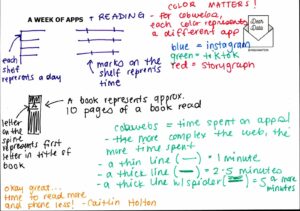 A WEEK OF APPS + READING
COLOR MATTERS!
- for cobwebs,
each color represents
a different app
blue = instagram
green = tiktok
red = storygraph
Dear
Data
each
shelf
represents a day
marks on the
shelf represents
time
A book represents approx.
10 pages of a book read
letter
on the
spine
represents first
letter of title of
book
cobwebs = time spent on apps!
- the more complex the web, the
more time spent
- a thin line (—) = 1 minute
- a thick line (—) = 2-5 minutes
- a thick line w/ spider ( ) = 5 or more
minutes
okay great...
time to read more
and phone less! - Caitlin Holton